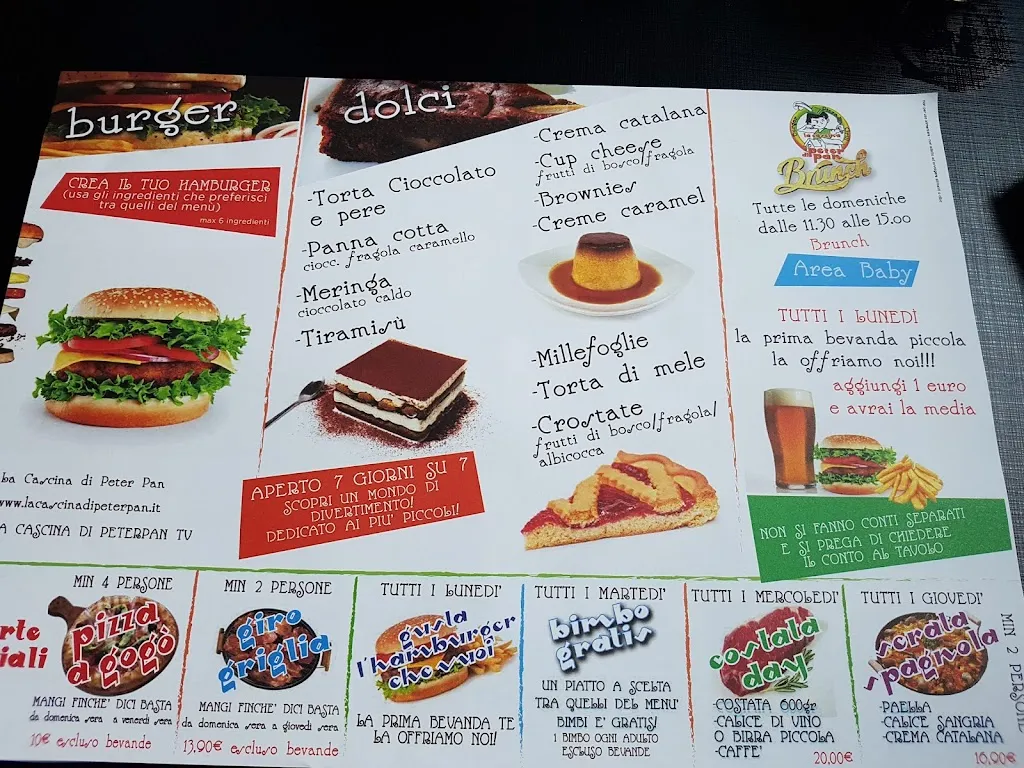 burger
CREA IL TUO HAMBURGER
(usa gli ingredienti che preferisci
tra quelli del menù)
max 6 ingredienti
La Cascina di Peter Pan
www.lacascinadipeterpan.it
A CASCINA DI PETERPAN TV
dolci
-Torta Cioccolato
e pere
-Panna cotta
ciocc. fragola caramello
-Meringa
cioccolato caldo
-Tiramisù
APERTO 7 GIORNI SU 7
SCOPRI UN MONDO DI
DIVERTIMENTO!
DEDICATO AI PIU' PICCOLI!
-Crema catalana
-Cup cheese
frutti di bosco/fragola
-Brownies
-Creme caramel
-Millefoglie
-Torta di mele
-Crostate
frutti di bosco/fragola/
albicocca
peter
pan
Brunch
Tutte le domeniche
dalle 11.30 alle 15.00
Brunch
Area Baby
TUTTI I LUNEDÌ
la prima bevanda piccola
la offriamo noi!!!
aggiungi 1 euro
e avrai la media
NON SI FANNO CONTI SEPARATI
E SI PREGA DI CHIEDERE
IL CONTO AL TAVOLO
rte
iali
MIN 4 PERSONE
pizza
a gogò
MANGI FINCHE' DICI BASTA
da domenica sera a venerdi sera
10€ escluso bevande
MIN 2 PERSONE
giro
griglia
MANGI FINCHE' DICI BASTA
da domenica sera a giovedi sera
13,90€ escluso bevande
TUTTI I LUNEDI'
gusta
l'hamburger
che vuoi
LA PRIMA BEVANDA TE
LA OFFRIAMO NOI!
TUTTI I MARTEDI'
bimbo
gratis
UN PIATTO A SCELTA
TRA QUELLI DEL MENU'
BIMBI E' GRATIS!
1 BIMBO OGNI ADULTO
ESCLUSO BEVANDE
TUTTI I MERCOLEDI'
costata
day
-COSTATA 600gr
-CALICE DI VINO
O BIRRA PICCOLA
-CAFFE'
20,00€
TUTTI I GIOVEDI'
serata
spagnola
-PAELLA
-CALICE SANGRIA
-CREMA CATALANA
16,00€
MIN 2 PERSONE